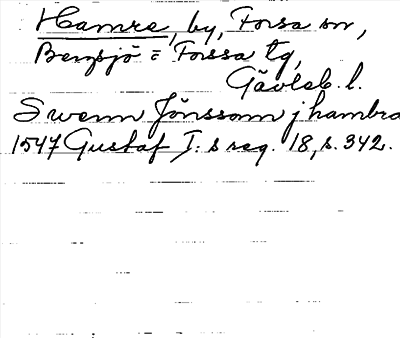 Hamre, by, Forsa sn,
Bergsjö = Forssa tg,
Gävleb. l.
Swenn Jönssomn j hambra
1547 Gustaf I:s reg. 18, s. 342.